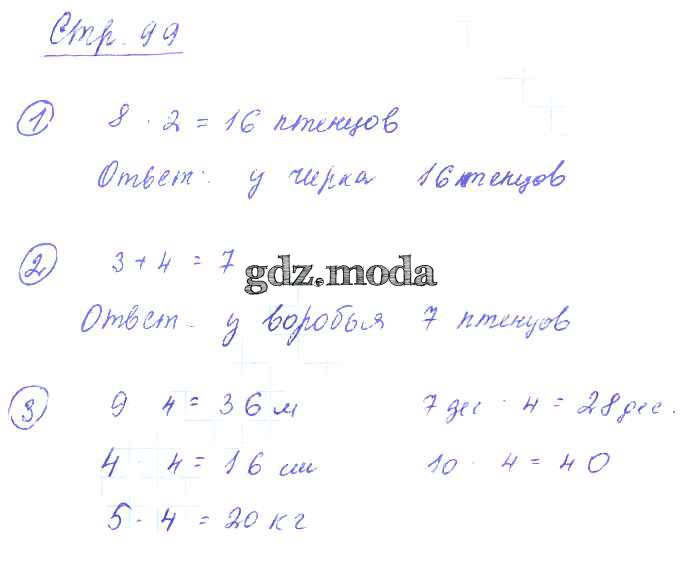 Стр. 99
1 8 · 2 = 16 птенцов
Ответ: у чирка 16 птенцов
2 3 + 4 = 7
gdz.moda
Ответ. у воробья 7 птенцов
3 9 4 = 36 м 7 дес · 4 = 28 дес.
4 · 4 = 16 см 10 · 4 = 40
5 · 4 = 20 кг